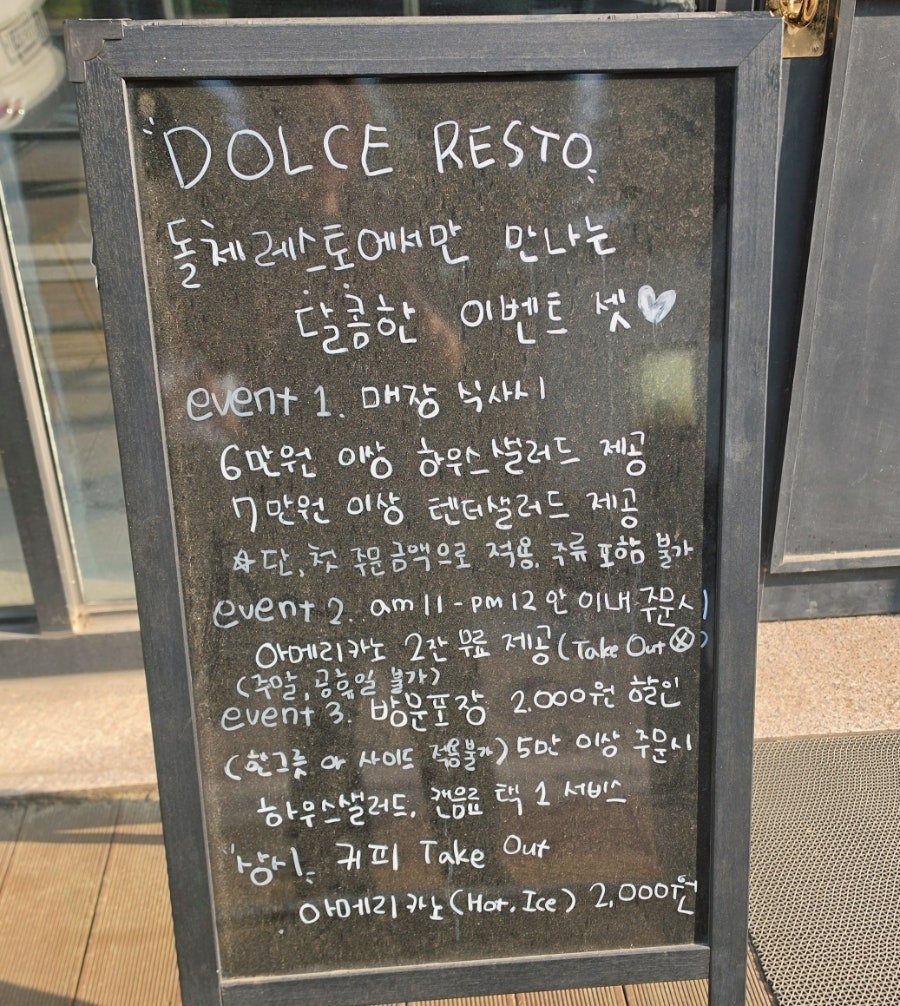 "DOLCE RESTO"
돌체레스토에서만 만나는
달콤한 이벤트 셋♥
event 1. 매장 식사시
6만원 이상 하우스샐러드 제공
7만원 이상 텐더샐러드 제공
☆단, 첫 주문금액으로 적용, 주류 포함 불가
event 2. am 11 - pm 12 안 이내 주문시
아메리카노 2잔 무료 제공 (Take Out ⓧ)
(주말, 공휴일 불가)
event 3. 방문포장 2.000원 할인
(한그릇 or 사이드 적용불가) 5만 이상 주문시
하우스샐러드, 캔음료 택 1 서비스
"상시" 커피 Take Out
아메리카노 (Hot, Ice) 2,000원